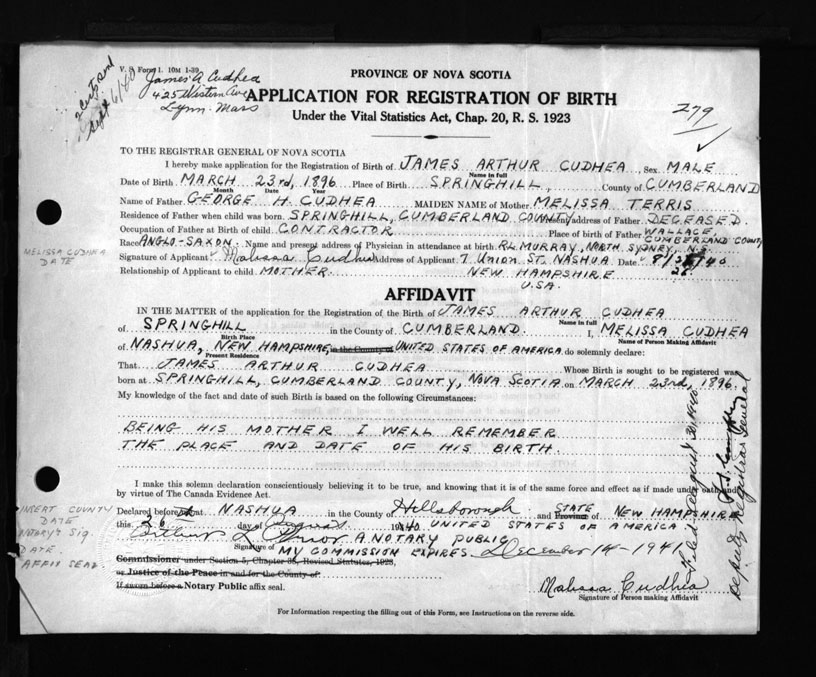 V. S. Form 1. 10M 1-39
James A Cudhea
425 Western Ave
Lynn. Mass
PROVINCE OF NOVA SCOTIA
APPLICATION FOR REGISTRATION OF BIRTH
Under the Vital Statistics Act, Chap. 20, R. S. 1923
279
TO THE REGISTRAR GENERAL OF NOVA SCOTIA
I hereby make application for the Registration of Birth of JAMES ARTHUR CUDHEA, Sex MALE
Name in full
Date of Birth MARCH 23rd, 1896 Place of Birth SPRINGHILL, County of CUMBERLAND
Month Date Year
Name of Father GEORGE H. CUDHEA MAIDEN NAME of Mother MELISSA TERRIS
Residence of Father when child was born. SPRINGHILL, CUMBERLAND COUNTY address of Father DECEASED.
Occupation of Father at Birth of child. CONTRACTOR Place of birth of Father WALLACE, CUMBERLAND COUNTY
Race ANGLO-SAXON. Name and present address of Physician in attendance at birth. R.L. MURRAY, NORTH SYDNEY, N.S.
MELISSA CUDHEA
DATE
Signature of Applicant Malissa Cudhea Address of Applicant. 7 UNION ST. NASHUA Date 8/ 26 /40
Relationship of Applicant to child. MOTHER. NEW HAMPSHIRE
U.S.A.
AFFIDAVIT
IN THE MATTER of the application for the Registration of the Birth of JAMES ARTHUR CUDHEA
Name in full
of SPRINGHILL in the County of CUMBERLAND. I, MELISSA CUDHEA
Birth Place Name of Person Making Affidavit
of NASHUA, NEW HAMPSHIRE, in the County of UNITED STATES OF AMERICA. do solemnly declare:
Present Residence
That JAMES ARTHUR CUDHEA Whose Birth is sought to be registered was
born at SPRINGHILL, CUMBERLAND COUNTY, NOVA SCOTIA on MARCH 23rd, 1896.
My knowledge of the fact and date of such Birth is based on the following Circumstances:
BEING HIS MOTHER I WELL REMEMBER
THE PLACE AND DATE OF HIS BIRTH.
I make this solemn declaration conscientiously believing it to be true, and knowing that it is of the same force and effect as if made under oath and
by virtue of The Canada Evidence Act.
INSERT COUNTY
DATE
NOTARY'S SIG.
DATE.
AFFIX SEAL
Declared before at NASHUA in the County of Hillsborough and STATE Province of NEW HAMPSHIRE
this 26 day of August 1940 UNITED STATES OF AMERICA.
A NOTARY PUBLIC
Signature of MY COMMISSION EXPIRES December 14-1941
Commissioner under Section 5, Chapter 35, Revised Statutes, 1923,
or Justice of the Peace in and for the County of
If sworn before a Notary Public affix seal.
Malissa Cudhea
Signature of Person making Affidavit
For Information respecting the filling out of this Form, see Instructions on the reverse side.
Filed August 30 1940
Deputy Registrar General